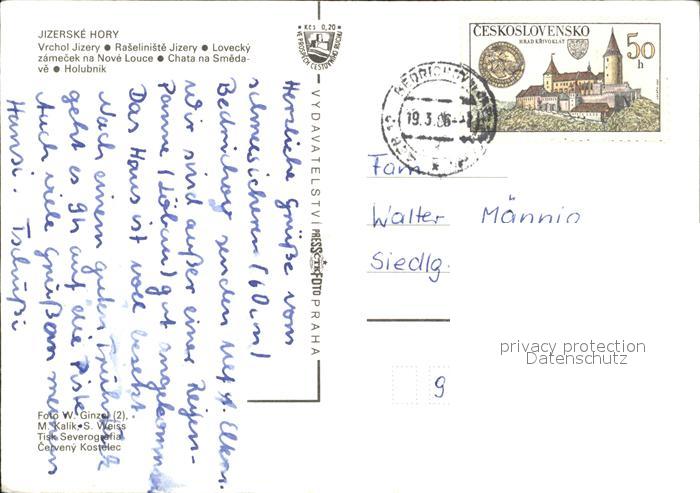 JIZERSKÉ HORY
Vrchol Jizery ● Rašeliniště Jizery ● Lovecký
zámeček na Nové Louce ● Chata na Směda-
vě ● Holubník
Kčs 0,20
VE PROSPĚCH CESTOVNÍHO RUCHU
ČESKOSLOVENSKO
HRAD KŘIVOKLÁT
50
h
19.3.86
VYDAVATELSTVÍ PRESSFOTO PRAHA
Herzliche Grüße vom
schneesicheren (60 cm)
Bedrichov senden
Wir sind außer einer Reifen-
Panne gut angekommen
Das Haus ist voll besetzt
Nach einem guten Frühstück
geht es 9h auf die Piste
Auch viele Grüße an
Hansi. Tschüßi
Fam
Walter Männig
Siedlg.
9
privacy protection
Datenschutz
Foto W. Ginzel (2),
M. Kalík, S. Weiss
Tisk Severografia
Červený Kostelec